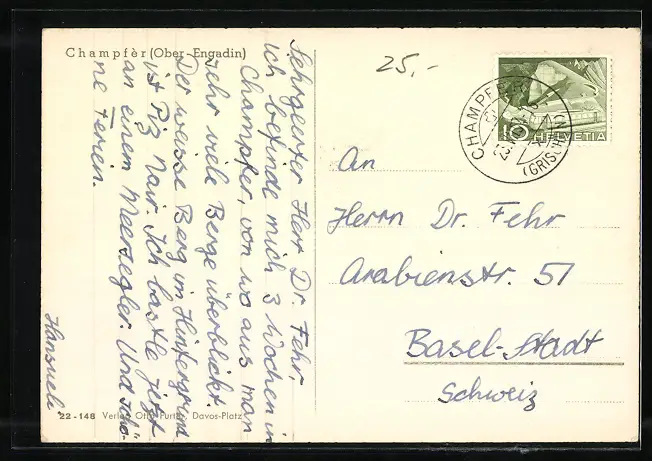 Champfèr (Ober-Engadin)
Sehrgeerter Herr Dr. Fehr,
ich befinde mich 3 Wochen in
Champfer, von wo aus man
sehr viele Berge überblickt.
Der weisse Berg im Hintergrund
ist Piz Nair. Ich bastle jetzt
an einem Meersegler. Und schö-
ne Ferien.
Hansueli
22-148 Verlag Otto Furter, Davos-Platz
25,-
CHAMPFER
(GRISCHUN)
10
HELVETIA
An
Herrn Dr. Fehr
Arabienstr. 51
Basel-Stadt
Schweiz